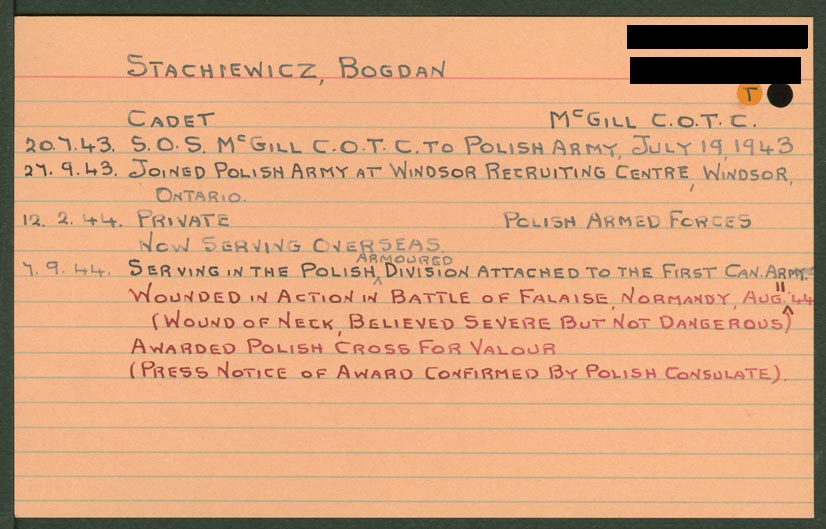 STACHIEWICZ, BOGDAN
T
CADET McGILL C.O.T.C.
20.7.43. S.O.S. McGILL C.O.T.C. TO POLISH ARMY, JULY 19, 1943
27.9.43. JOINED POLISH ARMY AT WINDSOR RECRUITING CENTRE, WINDSOR,
ONTARIO.
12.2.44. PRIVATE POLISH ARMED FORCES
NOW SERVING OVERSEAS.
ARMOURED
7.9.44. SERVING IN THE POLISH ^ DIVISION ATTACHED TO THE FIRST CAN. ARMY.
11
WOUNDED IN ACTION IN BATTLE OF FALAISE, NORMANDY, AUG. ^ '44
(WOUND OF NECK, BELIEVED SEVERE BUT NOT DANGEROUS)
AWARDED POLISH CROSS FOR VALOUR
(PRESS NOTICE OF AWARD CONFIRMED BY POLISH CONSULATE).